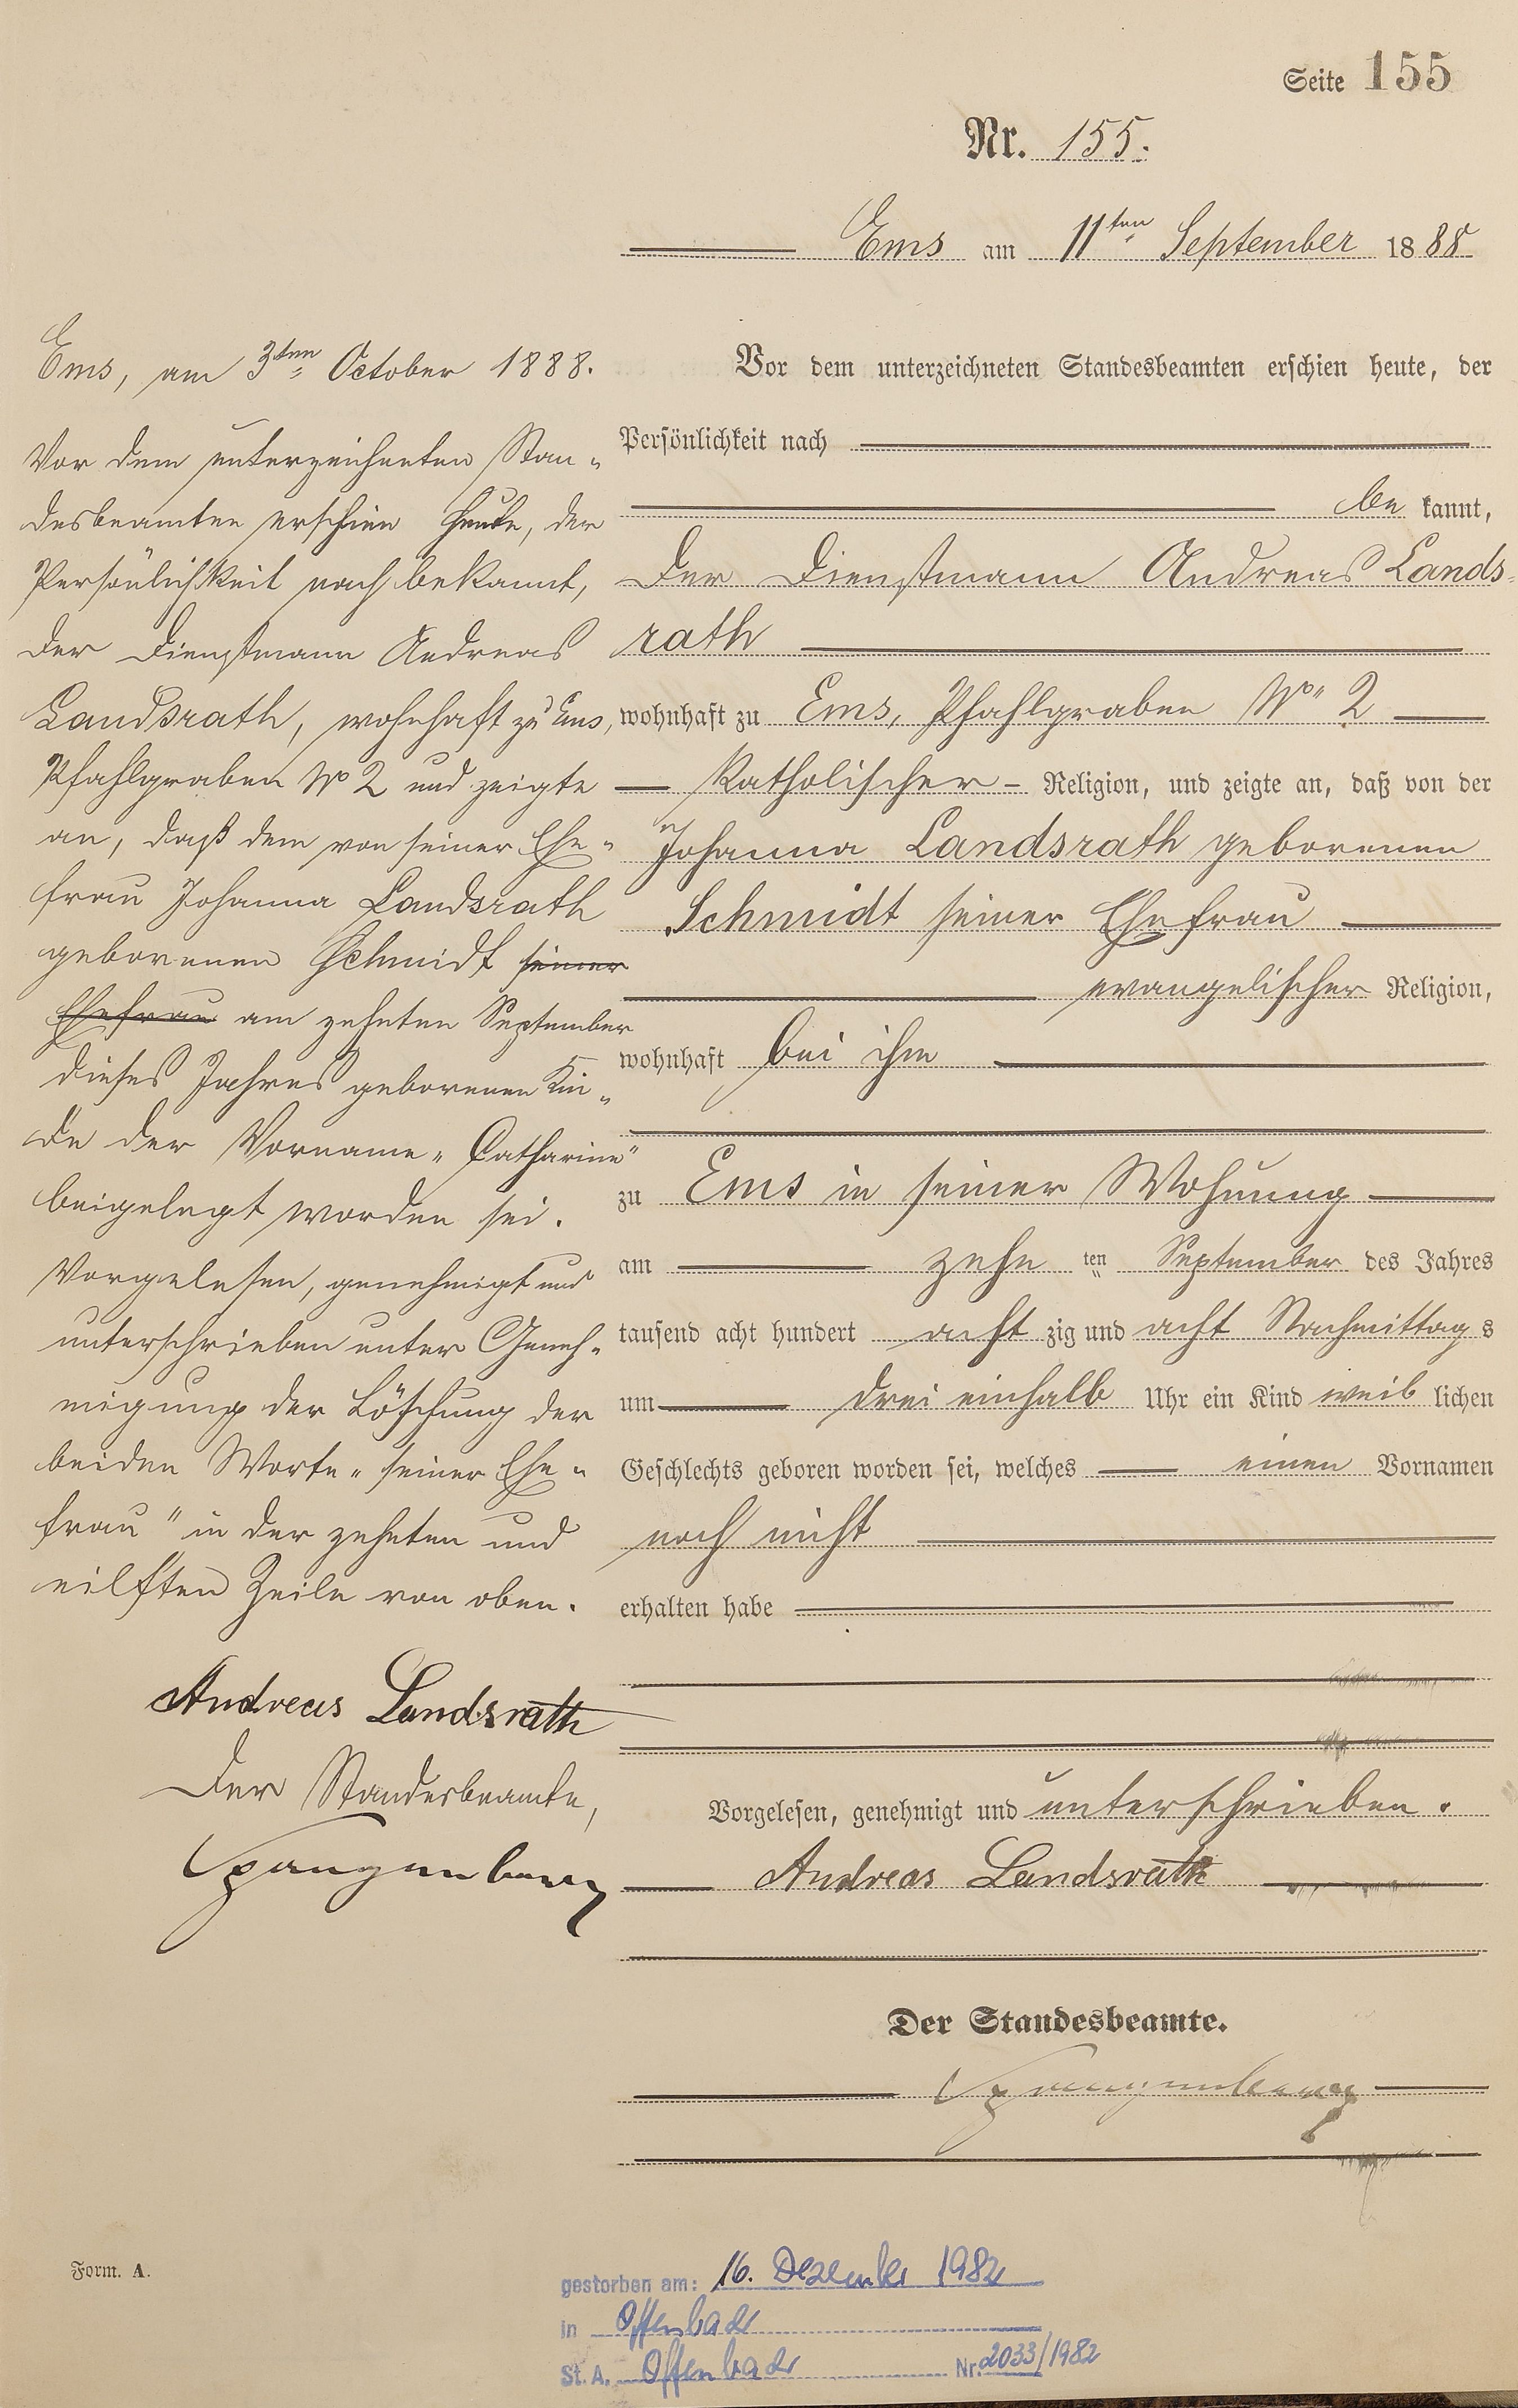 Seite 155
Nr. 155.
Ems am 11ten September 1888
Vor dem unterzeichneten Standesbeamten erschien heute, der
Persönlichkeit nach
be kannt,
der Dienstmann Andreas Lands-
rath
wohnhaft zu Ems, Pfahlgraben No 2
katholischer Religion, und zeigte an, daß von der
Johanna Landsrath geborenen
Schmidt seiner Ehefrau
evangelischer Religion,
wohnhaft bei ihm
zu Ems in seiner Wohnung
am zehn ten September des Jahres
tausend acht hundert acht zig und acht Nachmittags
um drei einhalb Uhr ein Kind weib lichen
Geschlechts geboren worden sei, welches einen Vornamen
noch nicht
erhalten habe
Vorgelesen, genehmigt und unterschrieben.
Andreas Landsrath
Der Standesbeamte.
Spangenberg
Ems, am 3ten October 1888.
Vor dem unterzeichneten Stan-
desbeamten erschien heute, der
Persönlichkeit nach bekannt,
der Dienstmann Andreas
Landsrath, wohnhaft zu Ems,
Pfahlgraben No 2 und zeigte
an, daß dem von seiner Ehe-
frau Johanna Landsrath
geborenen Schmidt seiner
Ehefrau am zehnten September
dieses Jahres geborenen Kin-
de der Vorname "Catharine"
beigelegt worden sei.
Vorgelesen, genehmigt und
unterschrieben unter Geneh-
migung der Löschung der
beiden Worte "seiner Ehe-
frau" in der zehnten und
eilften Zeile von oben.
Andreas Landsrath
Der Standesbeamte,
Spangenberg
Form. A.
gestorben am: 16. Dezember 1982
in Offenbach
St. A. Offenbach Nr. 2033/1982